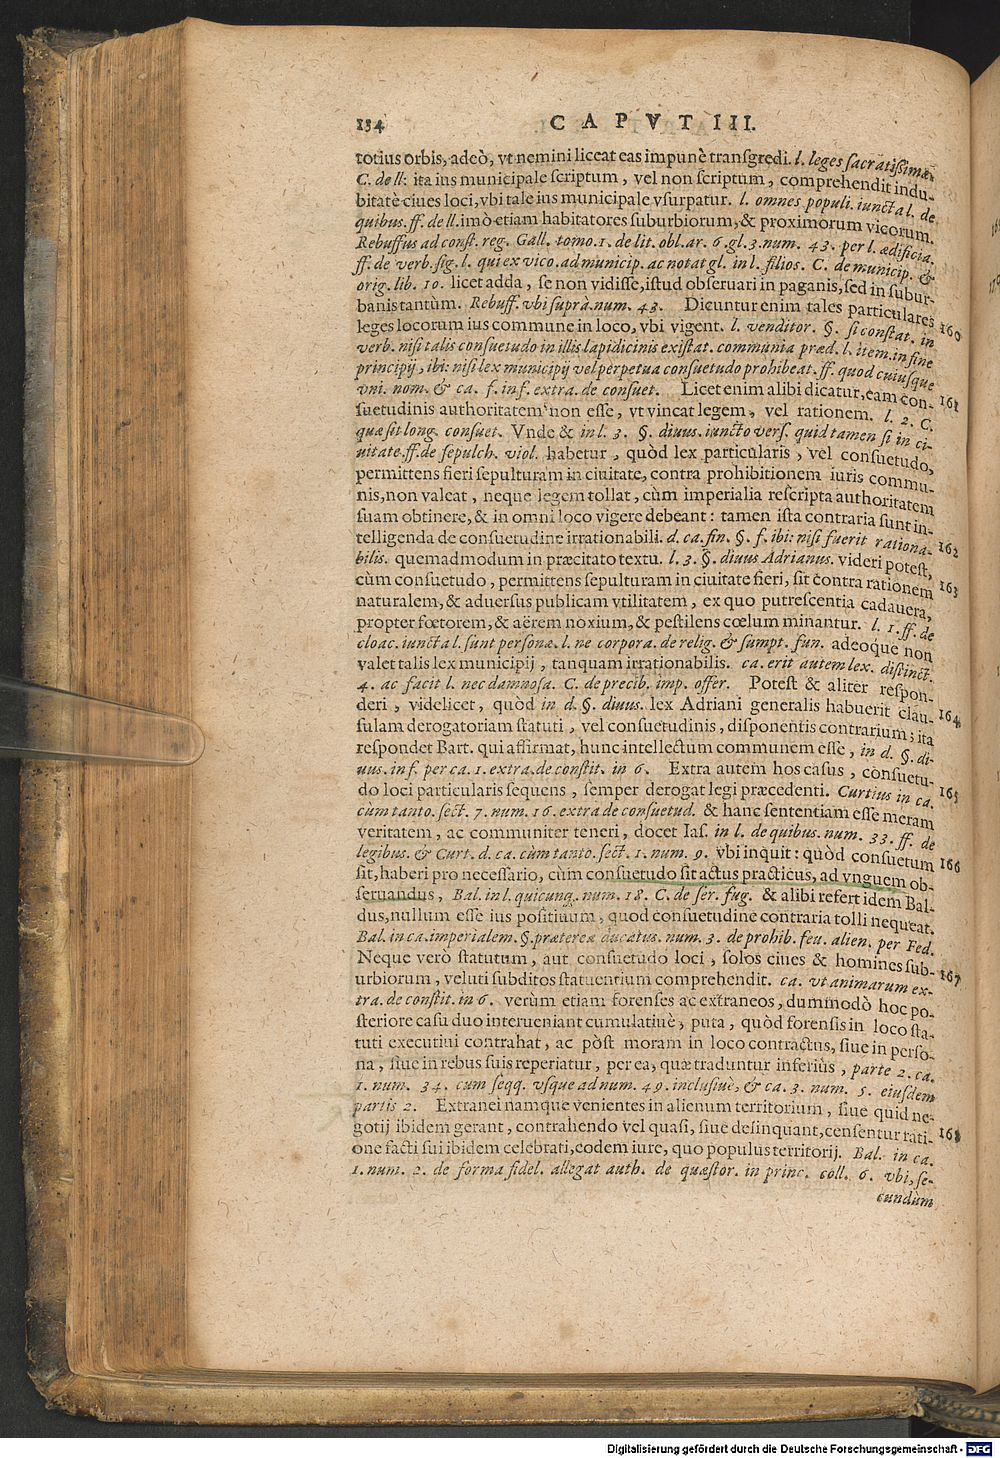 134 CAPVT III.
totius orbis, adeò, vt nemini liceat eas impunè transgredi. l. leges sacratissimæ.
C. de ll: ita ius municipale scriptum, vel non scriptum, comprehendit indu-
bitatè ciues loci, vbi tale ius municipale vsurpatur. l. omnes populi. iuncta l. de
quibus. ff. de ll. imò etiam habitatores suburbiorum, & proximorum vicorum.
Rebuffus ad const. reg. Gall. tomo. 1. de lit. obl. ar. 6. gl. 3. num. 43. per l. ædificia.
ff. de verb. sig. l. qui ex vico. ad municip. ac notat gl. in l. filios. C. de municip. &
orig. lib. 10. licet adda, se non vidisse, istud obseruari in paganis, sed in subur-
banis tantùm. Rebuff. vbi suprà. num. 43. Dicuntur enim tales particulares 160
leges locorum ius commune in loco, vbi vigent. l. venditor. §. si constat. in
verb. nisi talis consuetudo in illis lapidicinis existat. communia præd. l. item. in fine
principij, ibi: nisi lex municipij vel perpetua consuetudo prohibeat. ff. quod cuiusque
vni. nom. & ca. f. inf. extra. de consuet. Licet enim alibi dicatur, eam con- 161
suetudinis authoritatem non esse, vt vincat legem, vel rationem. l. 2. C.
quæ sit long. consuet. Vnde & in l. 3. §. diuus. iuncto vers. quid tamen si in ci-
uitate. ff. de sepulch. viol. habetur, quòd lex particularis, vel consuetudo,
permittens fieri sepulturam in ciuitate, contra prohibitionem iuris commu-
nis, non valeat, neque legem tollat, cùm imperialia rescripta authoritatem
suam obtinere, & in omni loco vigere debeant: tamen ista contraria sunt in-
telligenda de consuetudine irrationabili. d. ca. fin. §. f. ibi: nisi fuerit rationa- 162
bilis. quemadmodum in præcitato textu. l. 3. §. diuus Adrianus. videri potest,
cùm consuetudo, permittens sepulturam in ciuitate fieri, sit contra rationem 163
naturalem, & aduersus publicam vtilitatem, ex quo putrescentia cadauera,
propter fœtorem, & aërem noxium, & pestilens cœlum minantur. l. 1. ff. de
cloac. iuncta l. sunt personæ. l. ne corpora. de relig. & sumpt. fun. adeoque non
valet talis lex municipij, tanquam irrationabilis. ca. erit autem lex. distinct.
4. ac facit l. nec damnosa. C. de precib. imp. offer. Potest & aliter respon-
deri, videlicet, quòd in d. §. diuus. lex Adriani generalis habuerit clau- 164
sulam derogatoriam statuti, vel consuetudinis, disponentis contrarium; ita
respondet Bart. qui affirmat, hunc intellectum communem esse, in d. §. di-
uus. inf. per ca. 1. extra. de constit. in 6. Extra autem hos casus, consuetu-
do loci particularis sequens, semper derogat legi præcedenti. Curtius in ca. 165
cùm tanto. sect. 7. num. 16. extra de consuetud. & hanc sententiam esse meram
veritatem, ac communiter teneri, docet Ias. in l. de quibus. num. 33. ff. de
legibus. & Curt. d. ca. cùm tanto. sect. 1. num. 9. vbi inquit: quòd consuetum 166
sit, haberi pro necessario, cùm consuetudo sit actus practicus, ad vnguem ob-
seruandus, Bal. in l. quicunq. num. 18. C. de ser. fug. & alibi refert idem Bal-
dus, nullum esse ius positiuum, quod consuetudine contraria tolli nequeat.
Bal. in ca. imperialem. §. præterea ducatus. num. 3. de prohib. feu. alien. per Fed.
Neque verò statutum, aut consuetudo loci, solos ciues & homines sub-
urbiorum, veluti subditos statuentium comprehendit. ca. vt animarum ex- 167
tra. de constit. in 6. verùm etiam forenses ac extraneos, dummodò hoc po-
steriore casu duo interueniant cumulatiuè, puta, quòd forensis in loco sta-
tuti executiui contrahat, ac pòst moram in loco contractus, siue in perso-
na, siue in rebus suis reperiatur, per ea, quæ traduntur inferiùs, parte 2. ca.
1. num. 34. cum seqq. vsque ad num. 49. inclusiuè, & ca. 3. num. 5. eiusdem
partis 2. Extranei namque venientes in alienum territorium, siue quid ne-
gotij ibidem gerant, contrahendo vel quasi, siue delinquant, censentur rati- 168
one facti sui ibidem celebrati, eodem iure, quo populus territorij. Bal. in ca.
1. num. 2. de forma fidel. allegat auth. de quæstor. in princ. coll. 6. vbi, se-
cundùm
Digitalisierung gefördert durch die Deutsche Forschungsgemeinschaft - DFG